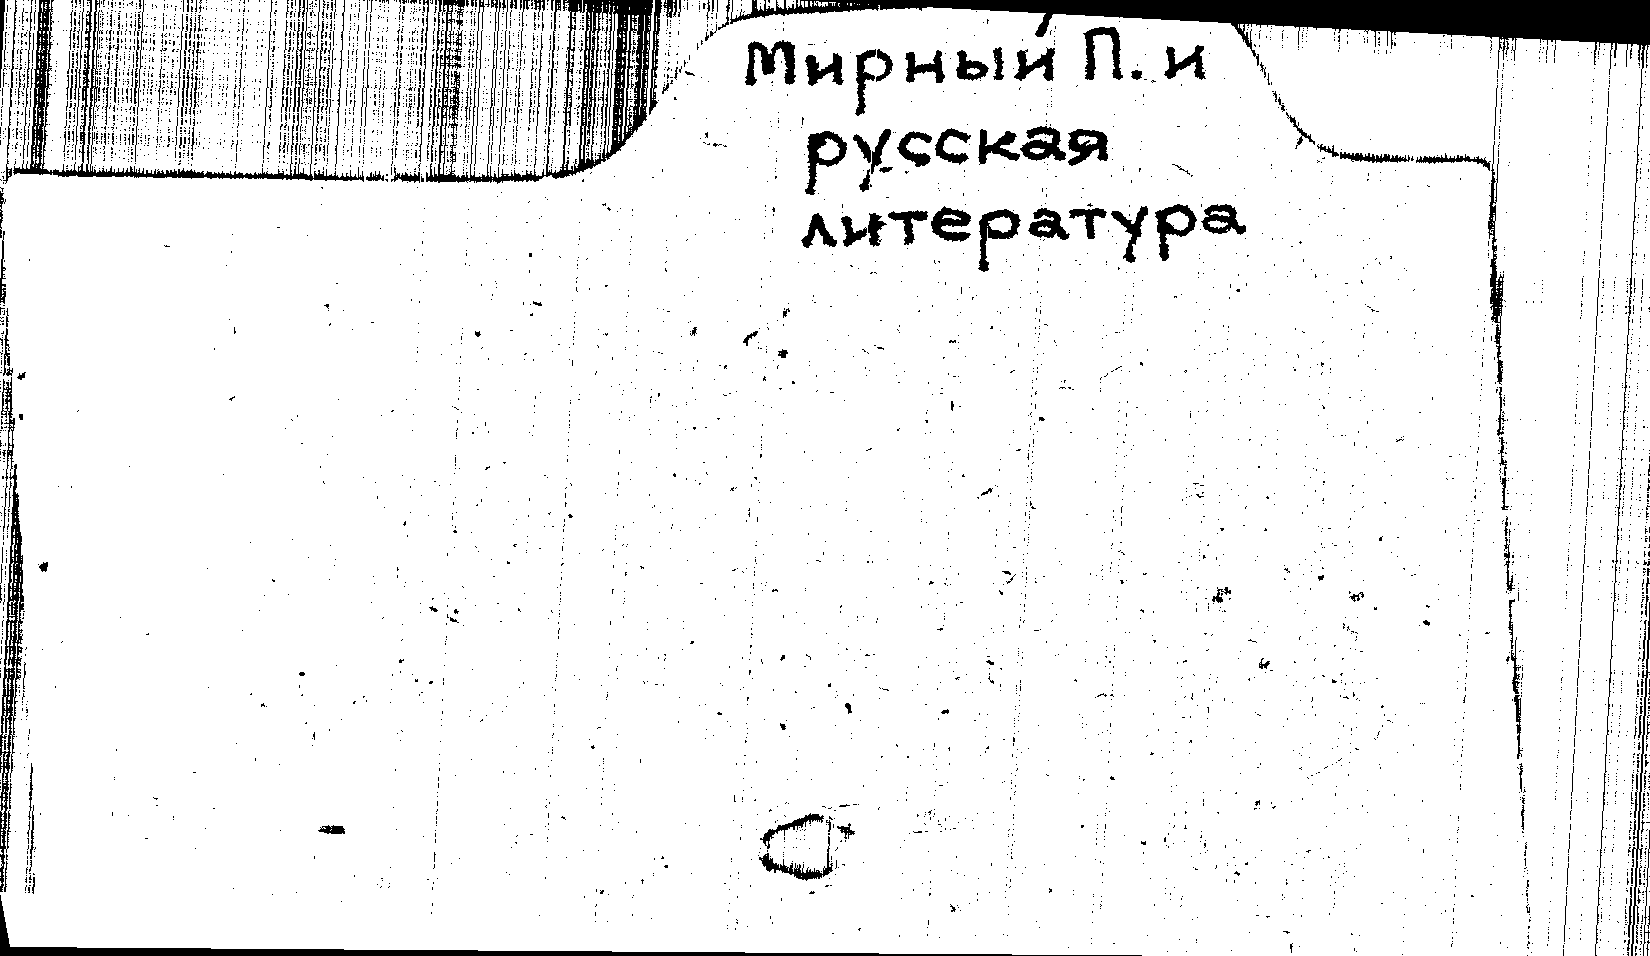 Мирный П. и
русская
литература